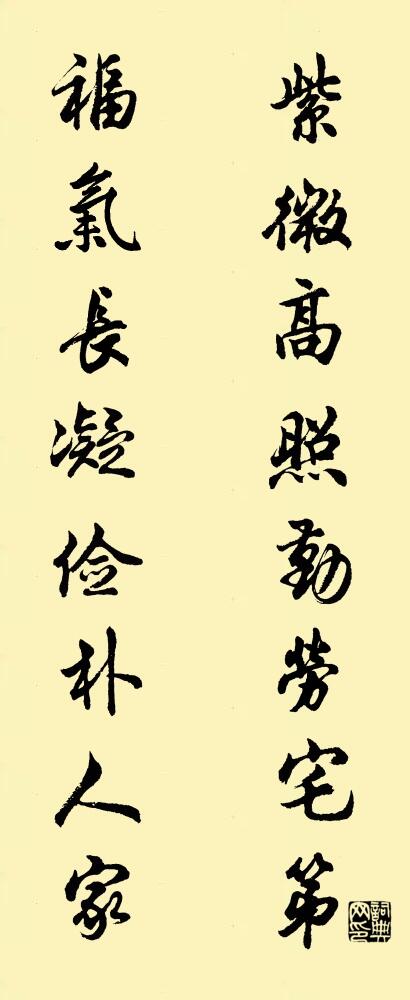 紫微髙照勤勞宅第
福氣長凝俭朴人家
詞典网印